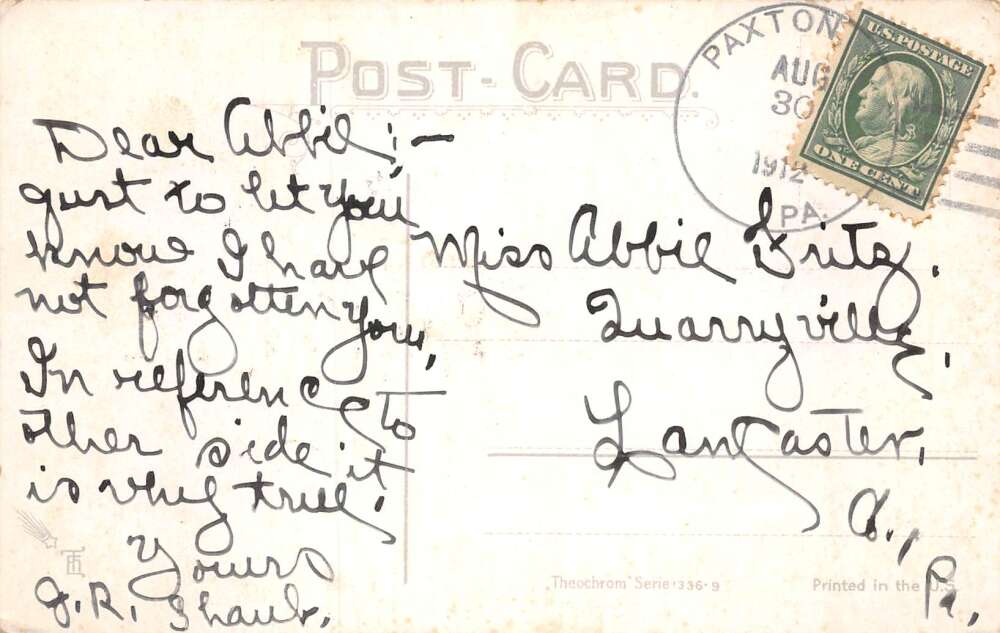 POST-CARD.
PAXTON
AUG
30
1912
PA.
U.S. POSTAGE
ONE CENT
Dear Abbie:—
Just to let you
know I have
not forgotten you,
In reference to
other side it
is very true.
Yours
J. R. Shaub.
Miss Abbie Fritz,
Quarryville,
Lancaster,
Co.,
Pa.
"Theochrom" Serie 336-9
Printed in the U.S.